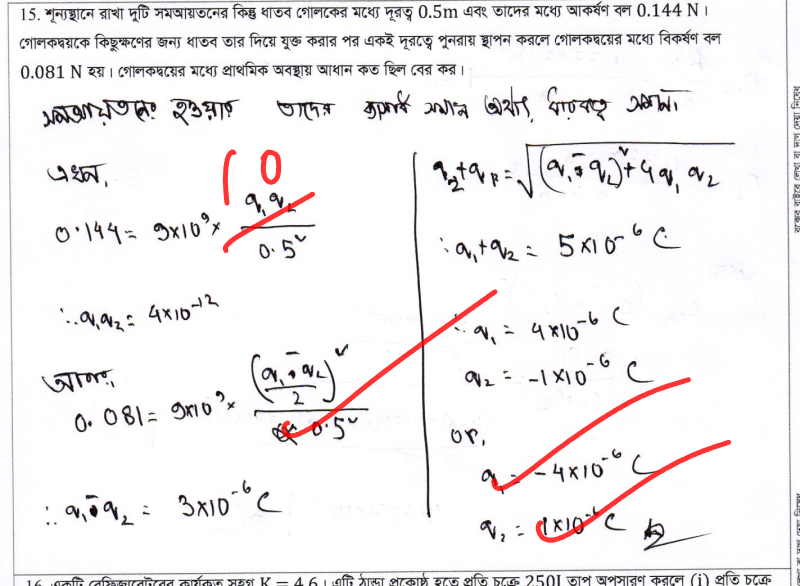 15. শূন্যস্থানে রাখা দুটি সমআয়তনের কিন্তু ধাতব গোলকের মধ্যে দূরত্ব 0.5m এবং তাদের মধ্যে আকর্ষণ বল 0.144 N।
গোলকদ্বয়কে কিছুক্ষণের জন্য ধাতব তার দিয়ে যুক্ত করার পর একই দূরত্বে পুনরায় স্থাপন করলে গোলকদ্বয়ের মধ্যে বিকর্ষণ বল
0.081 N হয়। গোলকদ্বয়ের মধ্যে প্রাথমিক অবস্থায় আধান কত ছিল বের কর।
সমআয়তনের হওয়ায় তাদের ব্যাসার্ধ সমান অর্থাৎ, ধারকত্ব সমান।
এখন,
10
0.144 = 9×10⁹× q₁q₂ / 0.5²
∴ q₁q₂ = 4×10⁻¹²
আবার,
0.081 = 9×10⁹× ((q₁-q₂)/2)² / 0.5²
∴ q₁-q₂ = 3×10⁻⁶ C
q₂+q₁ = √((q₁-q₂)²+4q₁q₂
∴ q₁+q₂ = 5×10⁻⁶ C
∴ q₁ = 4×10⁻⁶ C
q₂ = -1×10⁻⁶ C
or,
q₁ = -4×10⁻⁶ C
q₂ = 1×10⁻⁶ C
16. একটি রেফ্রিজারেটরের কার্যকৃত সহগ K = 4.6। এটি ঠান্ডা প্রকোষ্ঠ হতে প্রতি চক্রে 250J তাপ অপসারণ করলে (i) প্রতি চক্রে